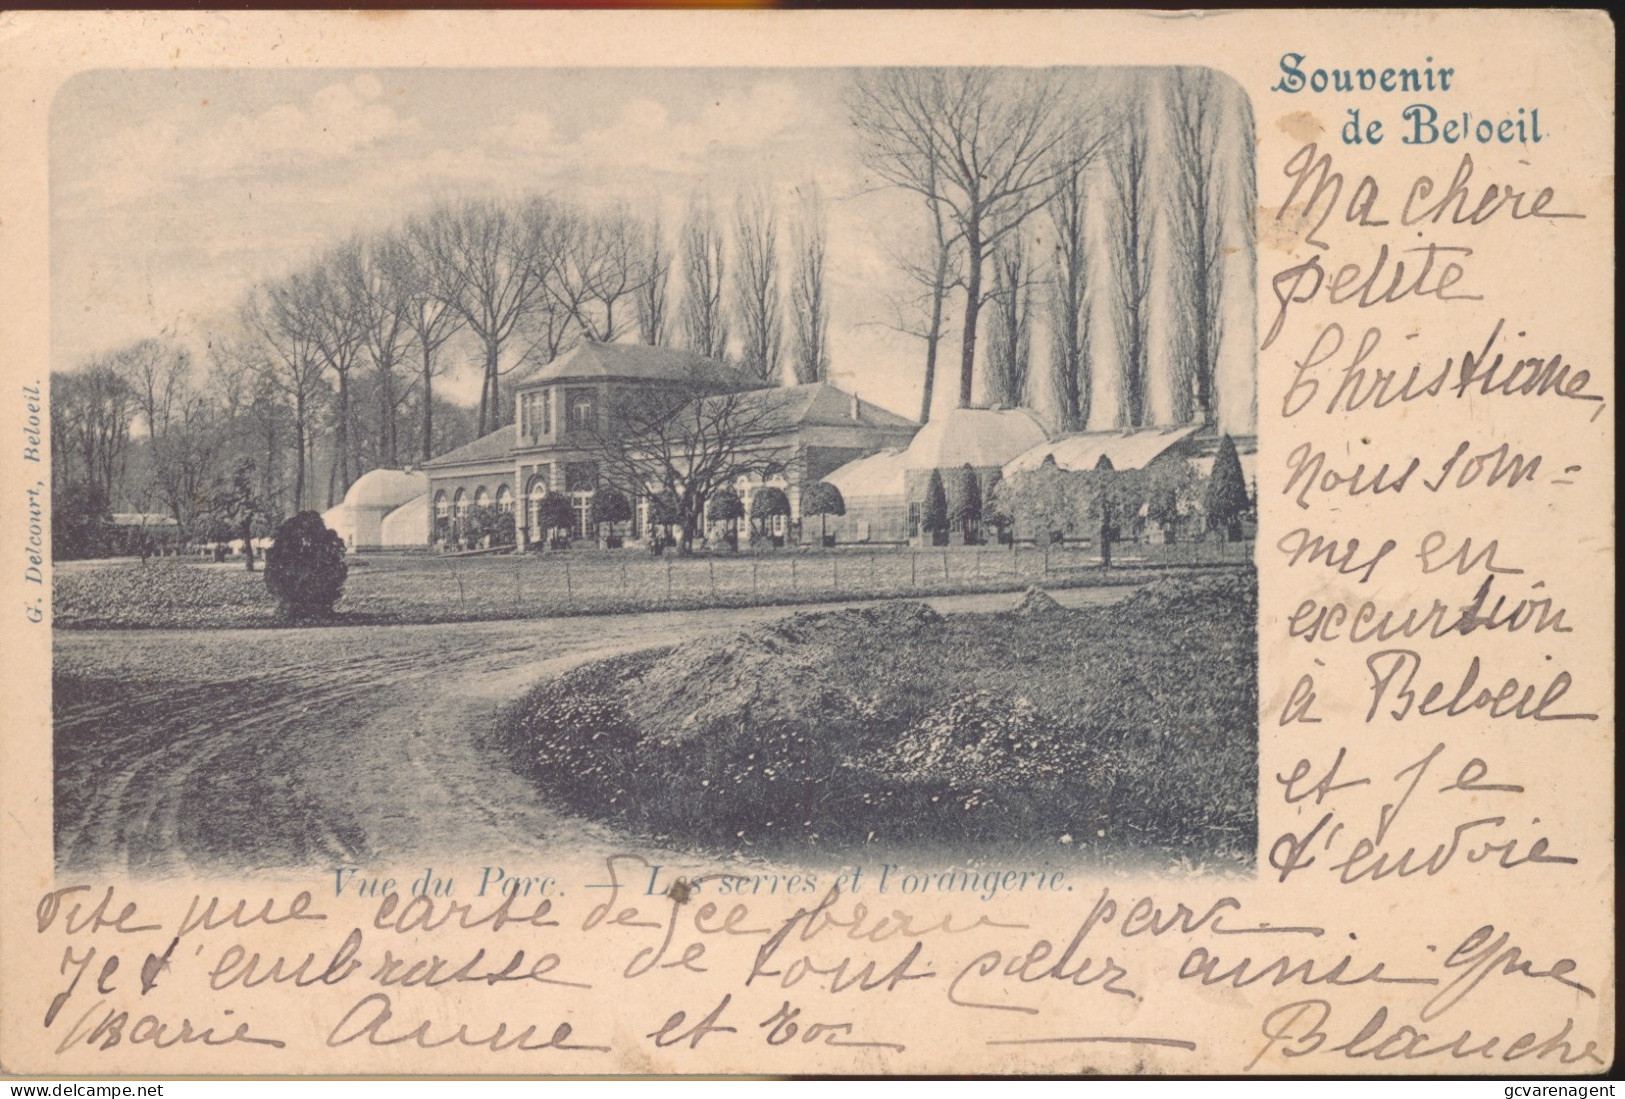 Souvenir
de Beloeil
Ma chère
petite
Christiane,
nous som=
mes en
excursion
à Beloeil
et je
t'envoie
G. Delcourt, Beloeil.
Vue du Parc. — Les serres et l'orangerie.
Vite une carte de ce beau parc.
Je t'embrasse de tout cœur ainsi que
Marie Anne et
Blanche
delcampe.net
gcvarenagent